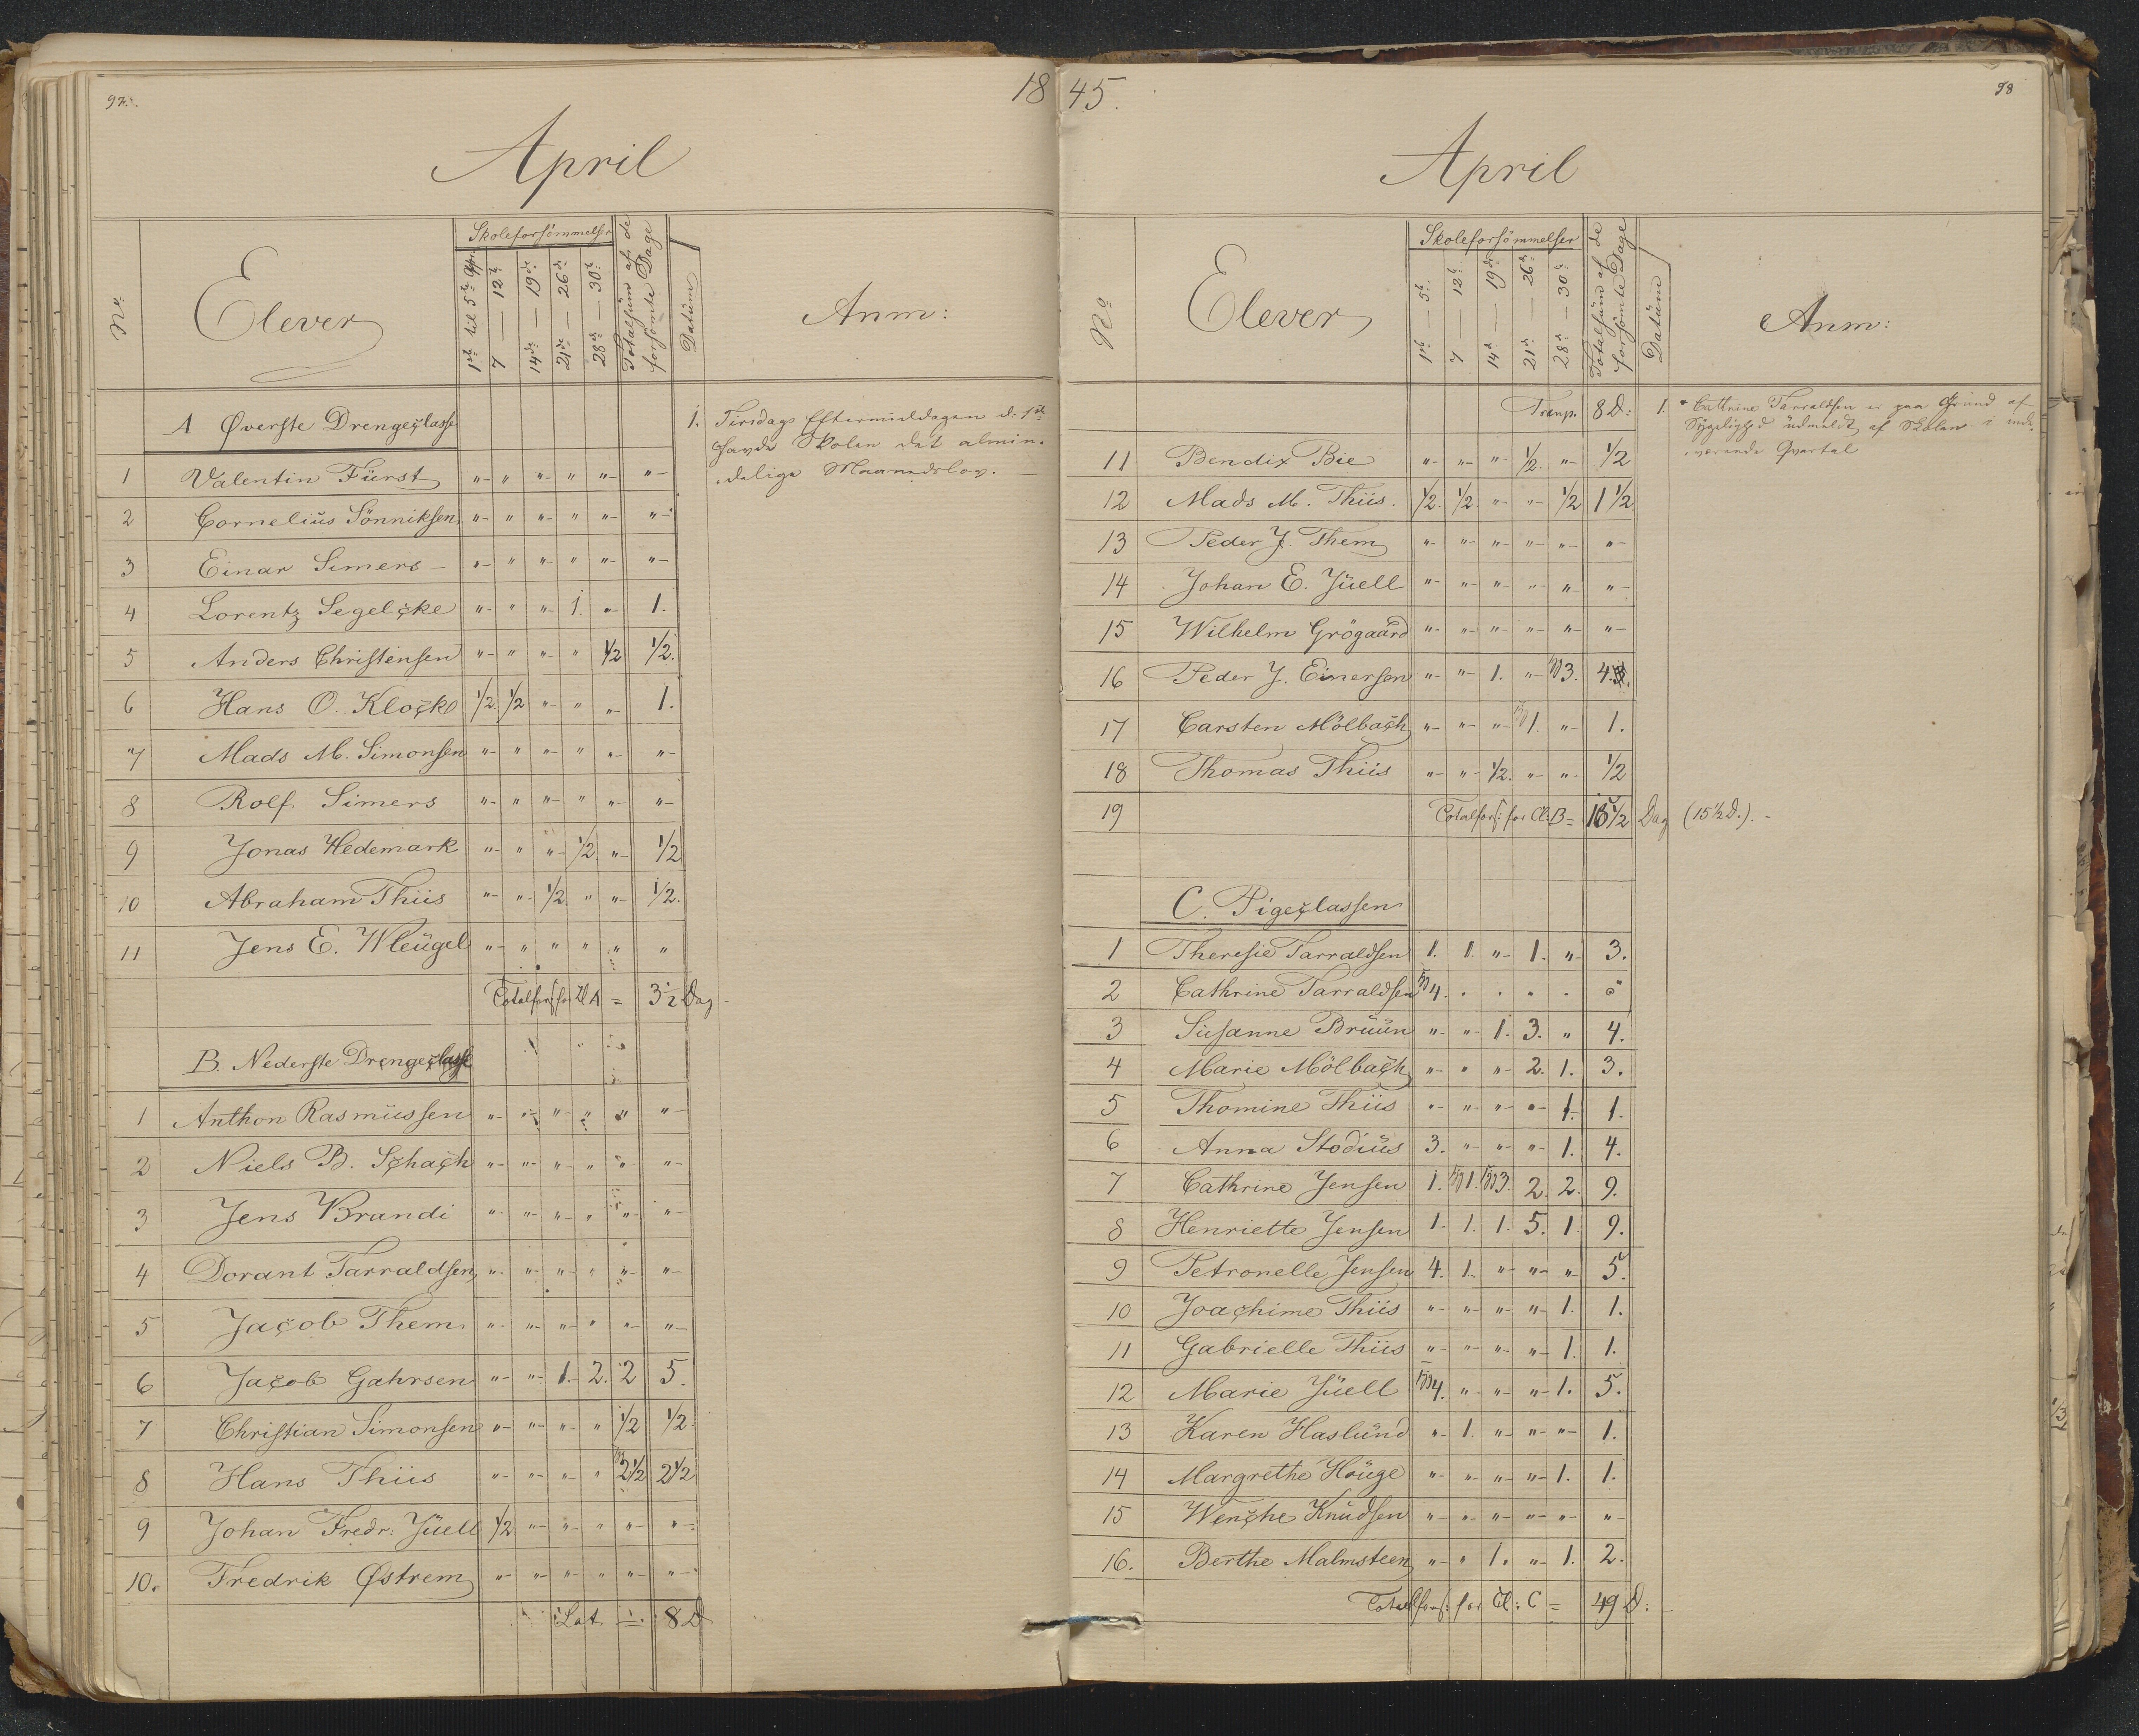 97.
18
April
No.
Elever
Skoleforsömmelser
1ste til 5te Apr.
7 — 12te
14de — 19de
21de — 26de
28de — 30te
Totalsüm af de forsömte Dage
Datüm
Anm:
A Øverste Drengeclasse
1. Tirsdags Eftermiddagen d: 1ste
havde Skolen det almin-
delige Maanedslov. —
1 Valentin Fürst " " " " " "
2 Corneliüs Sönniksen " " " " " "
3 Einar Simers " " " " " "
4 Lorentz Segelcke " " " 1. " 1.
5 Anders Christensen " " " " 1/2 1/2.
6 Hans O. Klocke 1/2. 1/2 " " " 1.
7 Mads M. Simonsen " " " " " "
8 Rolf Simers " " " " " "
9 Jonas Hedemark " " " 1/2 " 1/2
10 Abraham Thiis " " 1/2. " " 1/2.
11 Jens E. Wleügel " " " " " "
Totalfors: for Cl A = 3 1/2 Dag
B. Nederste Drengeclasse
1 Anthon Rasmüssen " " " " " "
2 Niels B. Schach " " " " " "
3 Jens Brandi " " " " " "
4 Dorant Tarraldsen " " " " " "
5 Jacob Them " " " " " "
6 Jacob Gahrsen " " 1. 2. 2 5.
7 Christian Simonsen " " " " 1/2 1/2
8 Hans Thiis " " " " 2 1/2 2 1/2
9 Johan Fredr: Jüell 1/2 " " " " "
10. Fredrik Østrem " " " " " "
Lat. 8 D
45.
98
April
No
Elever
Skoleforsömmelser
1ste — 5te
7 — 12te
14de — 19de
21de — 26de
28de — 30te
Totalsüm af de forsömte Dage
Datüm
Anm:
Transp. 8 D: 1. * Cathrine Tarraldsen er paa Grund af
Sygelighed üdmeldt af Skolen i inde-
værende Qvartal
11 Bendix Bie " " " 1/2. " 1/2
12 Mads M. Thiis. 1/2. 1/2 " " 1/2 1 1/2
13 Peder J. Them " " " " " "
14 Johan E. Jüell " " " " " "
15 Wilhelm Grögaard " " " " " "
16 Peder J. Einersen " " 1. " 3. 4.
17 Carsten Mölbach " " " 1. " 1.
18 Thomas Thiis " " 1/2. " " 1/2
19 Totalfors: for Cl: B = 15 1/2 Dag (15 1/2 D.). -
C. Pigeclassen
1 Theresie Tarraldsen 1. 1. " 1. " 3.
2 Cathrine Tarraldsen 4. . . . .
3 Süsanne Brüün " " 1. 3. " 4.
4 Marie Mölbach " " " 2. 1. 3.
5 Thomine Thiis " " " " 1. 1.
6 Anna Stodiüs 3. " " " 1. 4.
7 Cathrine Jensen 1. 1. 3. 2. 2. 9.
8 Henriette Jensen 1. 1. 1. 5. 1. 9.
9 Petronelle Jensen 4. 1. " " " 5.
10 Joachime Thiis " " " " 1. 1.
11 Gabrielle Thiis " " " " 1. 1.
12 Marie Jüell 4. " " " 1. 5.
13 Karen Haslünd " 1. " " " 1.
14 Margrethe Houge " " " " 1. 1.
15 Wenche Knüdsen " " " " " "
16. Berthe Malmsteen " " 1. " 1. 2.
Totalfors: for Cl: C = 49 D: